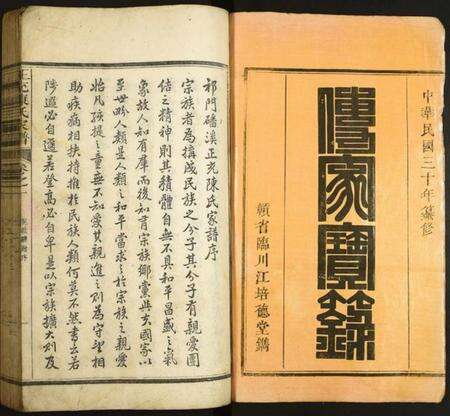 中華民國三十年纂修
傳家寶籙
贛省臨川江培德堂鐫
祁門磻溪正冲陳氏家譜序
宗族者為搆成民族之分子其分子有親愛團
結之精神則其積體自無不具和平昌盛之氣
象故人知有羣而後知有宗族鄉黨與夫國家以
至世畛人類是人類之和平當求之於宗族之親愛
始凡孩提之童無不知愛其親進之則為守望相
助疾病相扶持推於民族人類何莫不然書云若
陟遐必自邇若登高必自卑是以宗族擴大則及